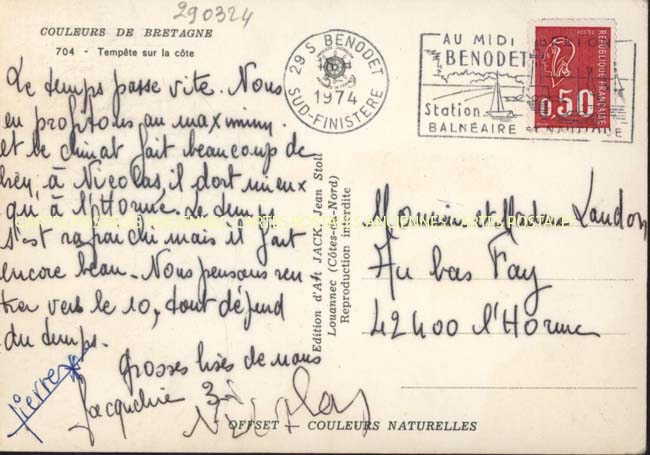 290324
COULEURS DE BRETAGNE
704 - Tempête sur la côte
Le temps passe vite. Nous
en profitons au maximum.
et le climat fait beaucoup de
bien, à Nicolas, il dort mieux
qu'à l'Horme. Le temps
s'est rafraichi mais il fait
encore beau. Nous pensons ren
trer vers le 10, tout dépend
du temps.
grosses bises de nous
Jacqueline
Nicolas
Pierre
29 S. BENODET
1974
SUD-FINISTERE
AU MIDI
BENODET
Station
BALNÉAIRE
POSTES
RÉPUBLIQUE FRANÇAISE
0,50
Edition d'Art JACK, Jean Stoll
Louannec (Côtes-du-Nord)
Reproduction interdite
Monsieur et Mme Landon
Au bas Fay
42400 l'Horme
OFFSET - COULEURS NATURELLES